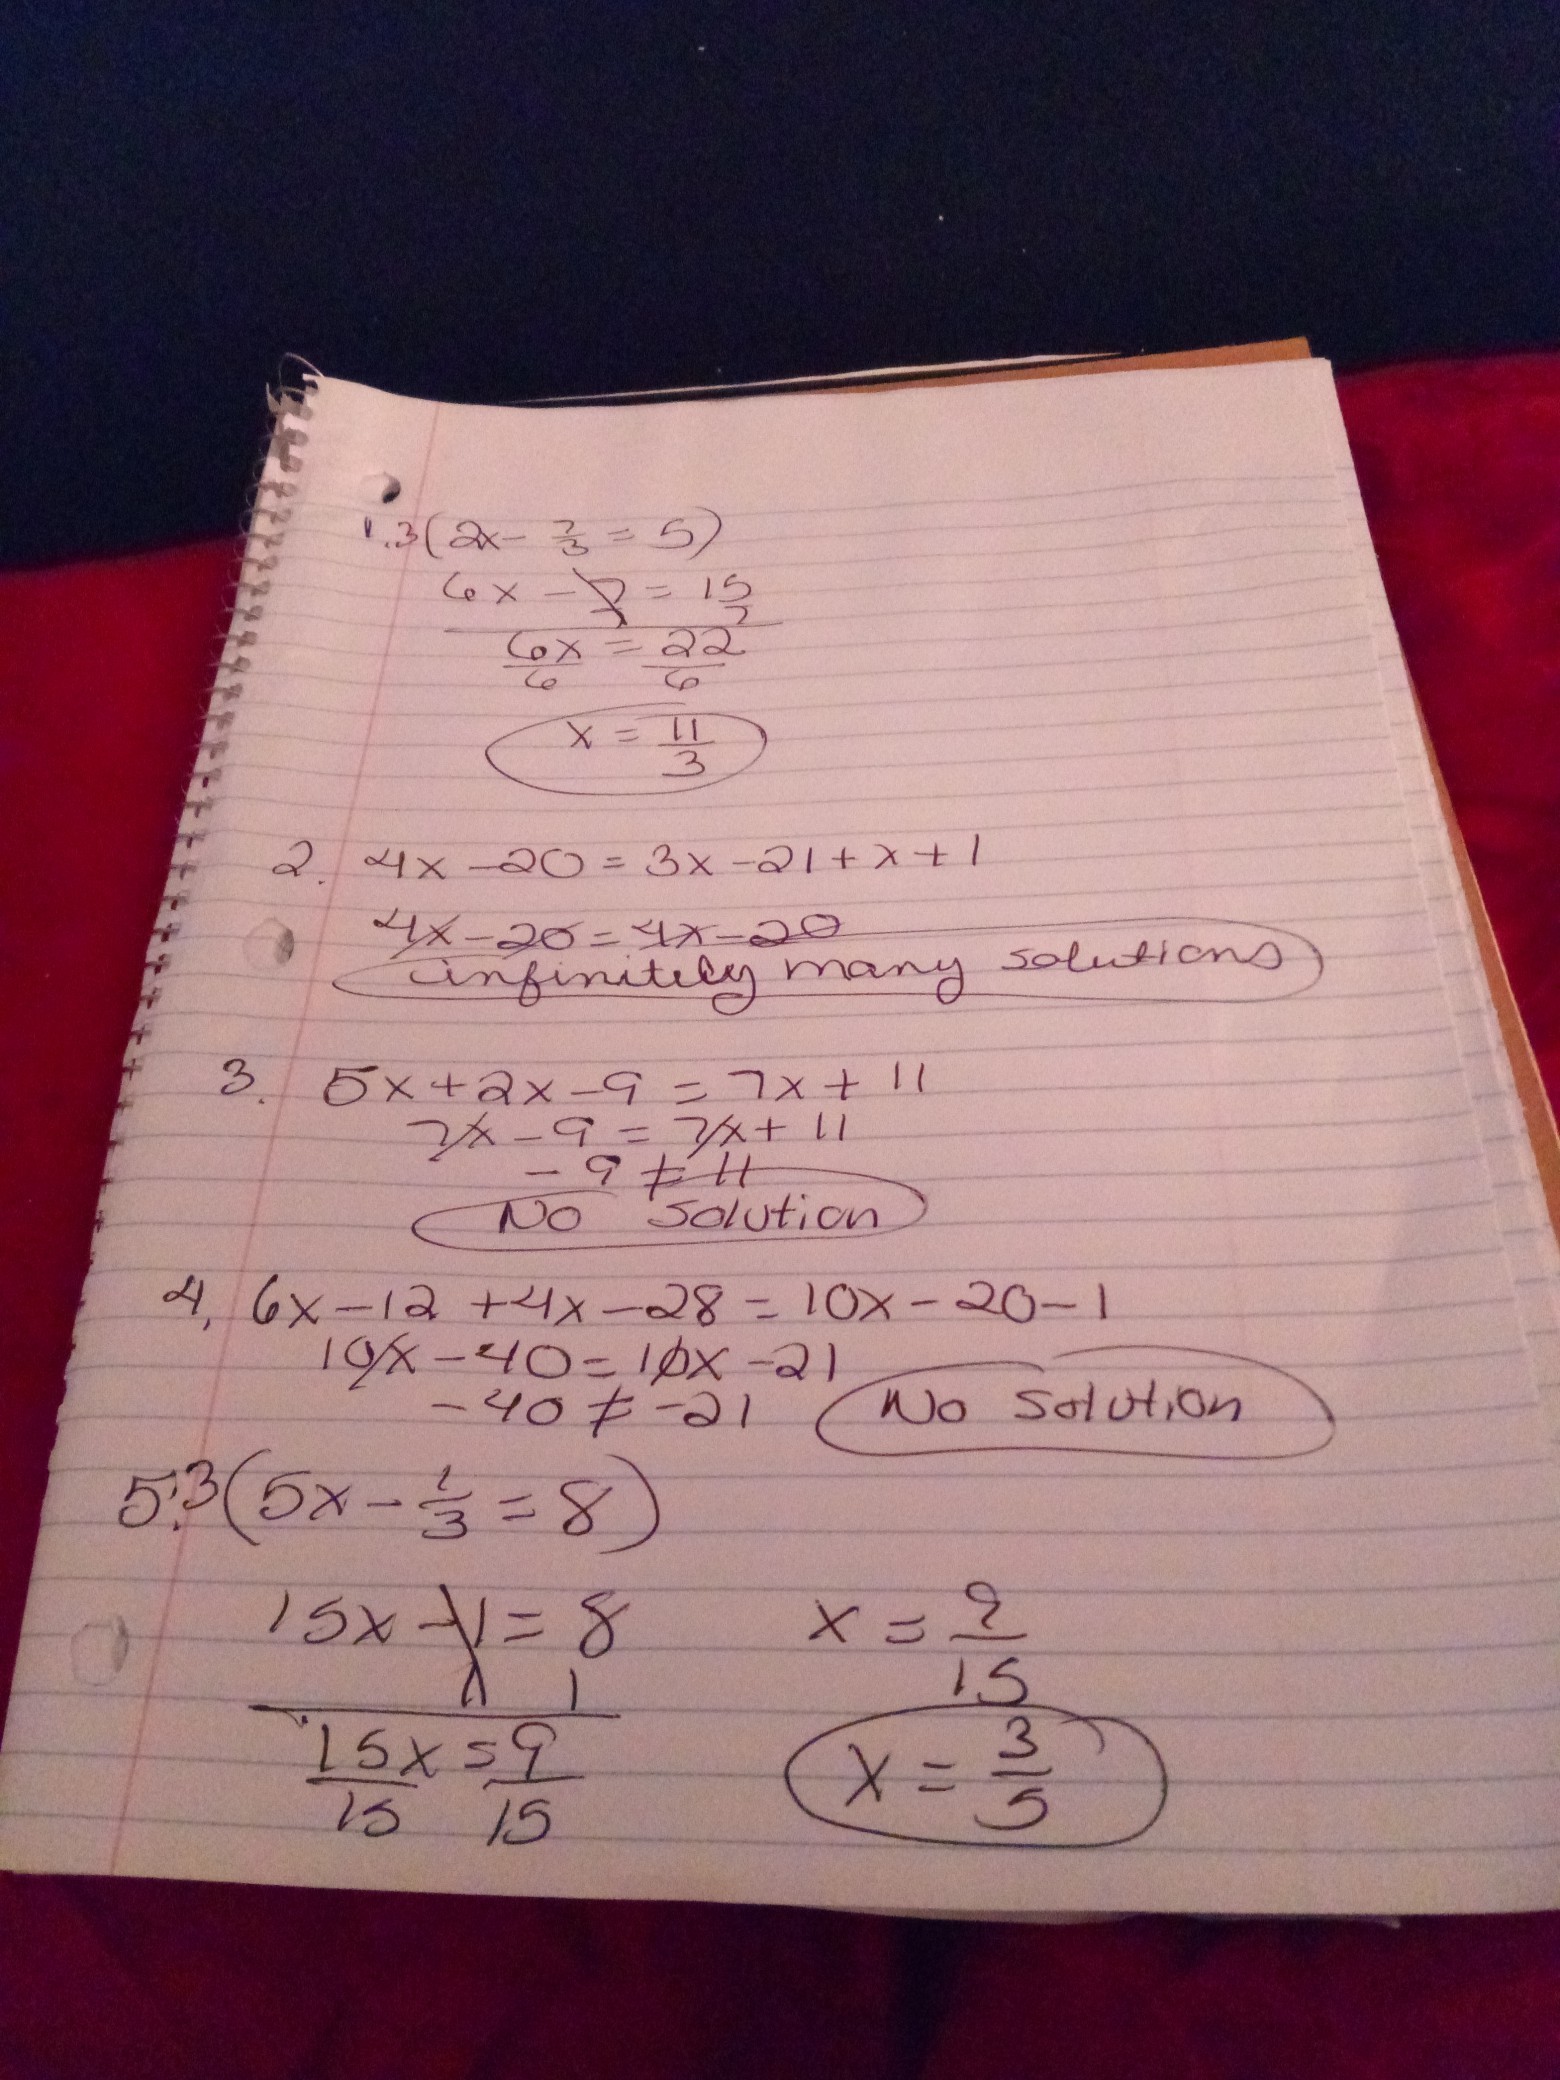 1. 3(2x - 7/3 = 5)
6x - 7 = 15
7 7
6x = 22
6 6
x = 11/3
2. 4x - 20 = 3x - 21 + x + 1
4x - 20 = 4x - 20
infinitely many solutions
3. 5x + 2x - 9 = 7x + 11
7x - 9 = 7x + 11
-9 ≠ 11
No solution
4. 6x - 12 + 4x - 28 = 10x - 20 - 1
10x - 40 = 10x - 21
-40 ≠ -21 No solution
5. 3(5x - 1/3 = 8)
15x - 1 = 8
1 1
15x = 9
15 15
x = 9/15
x = 3/5